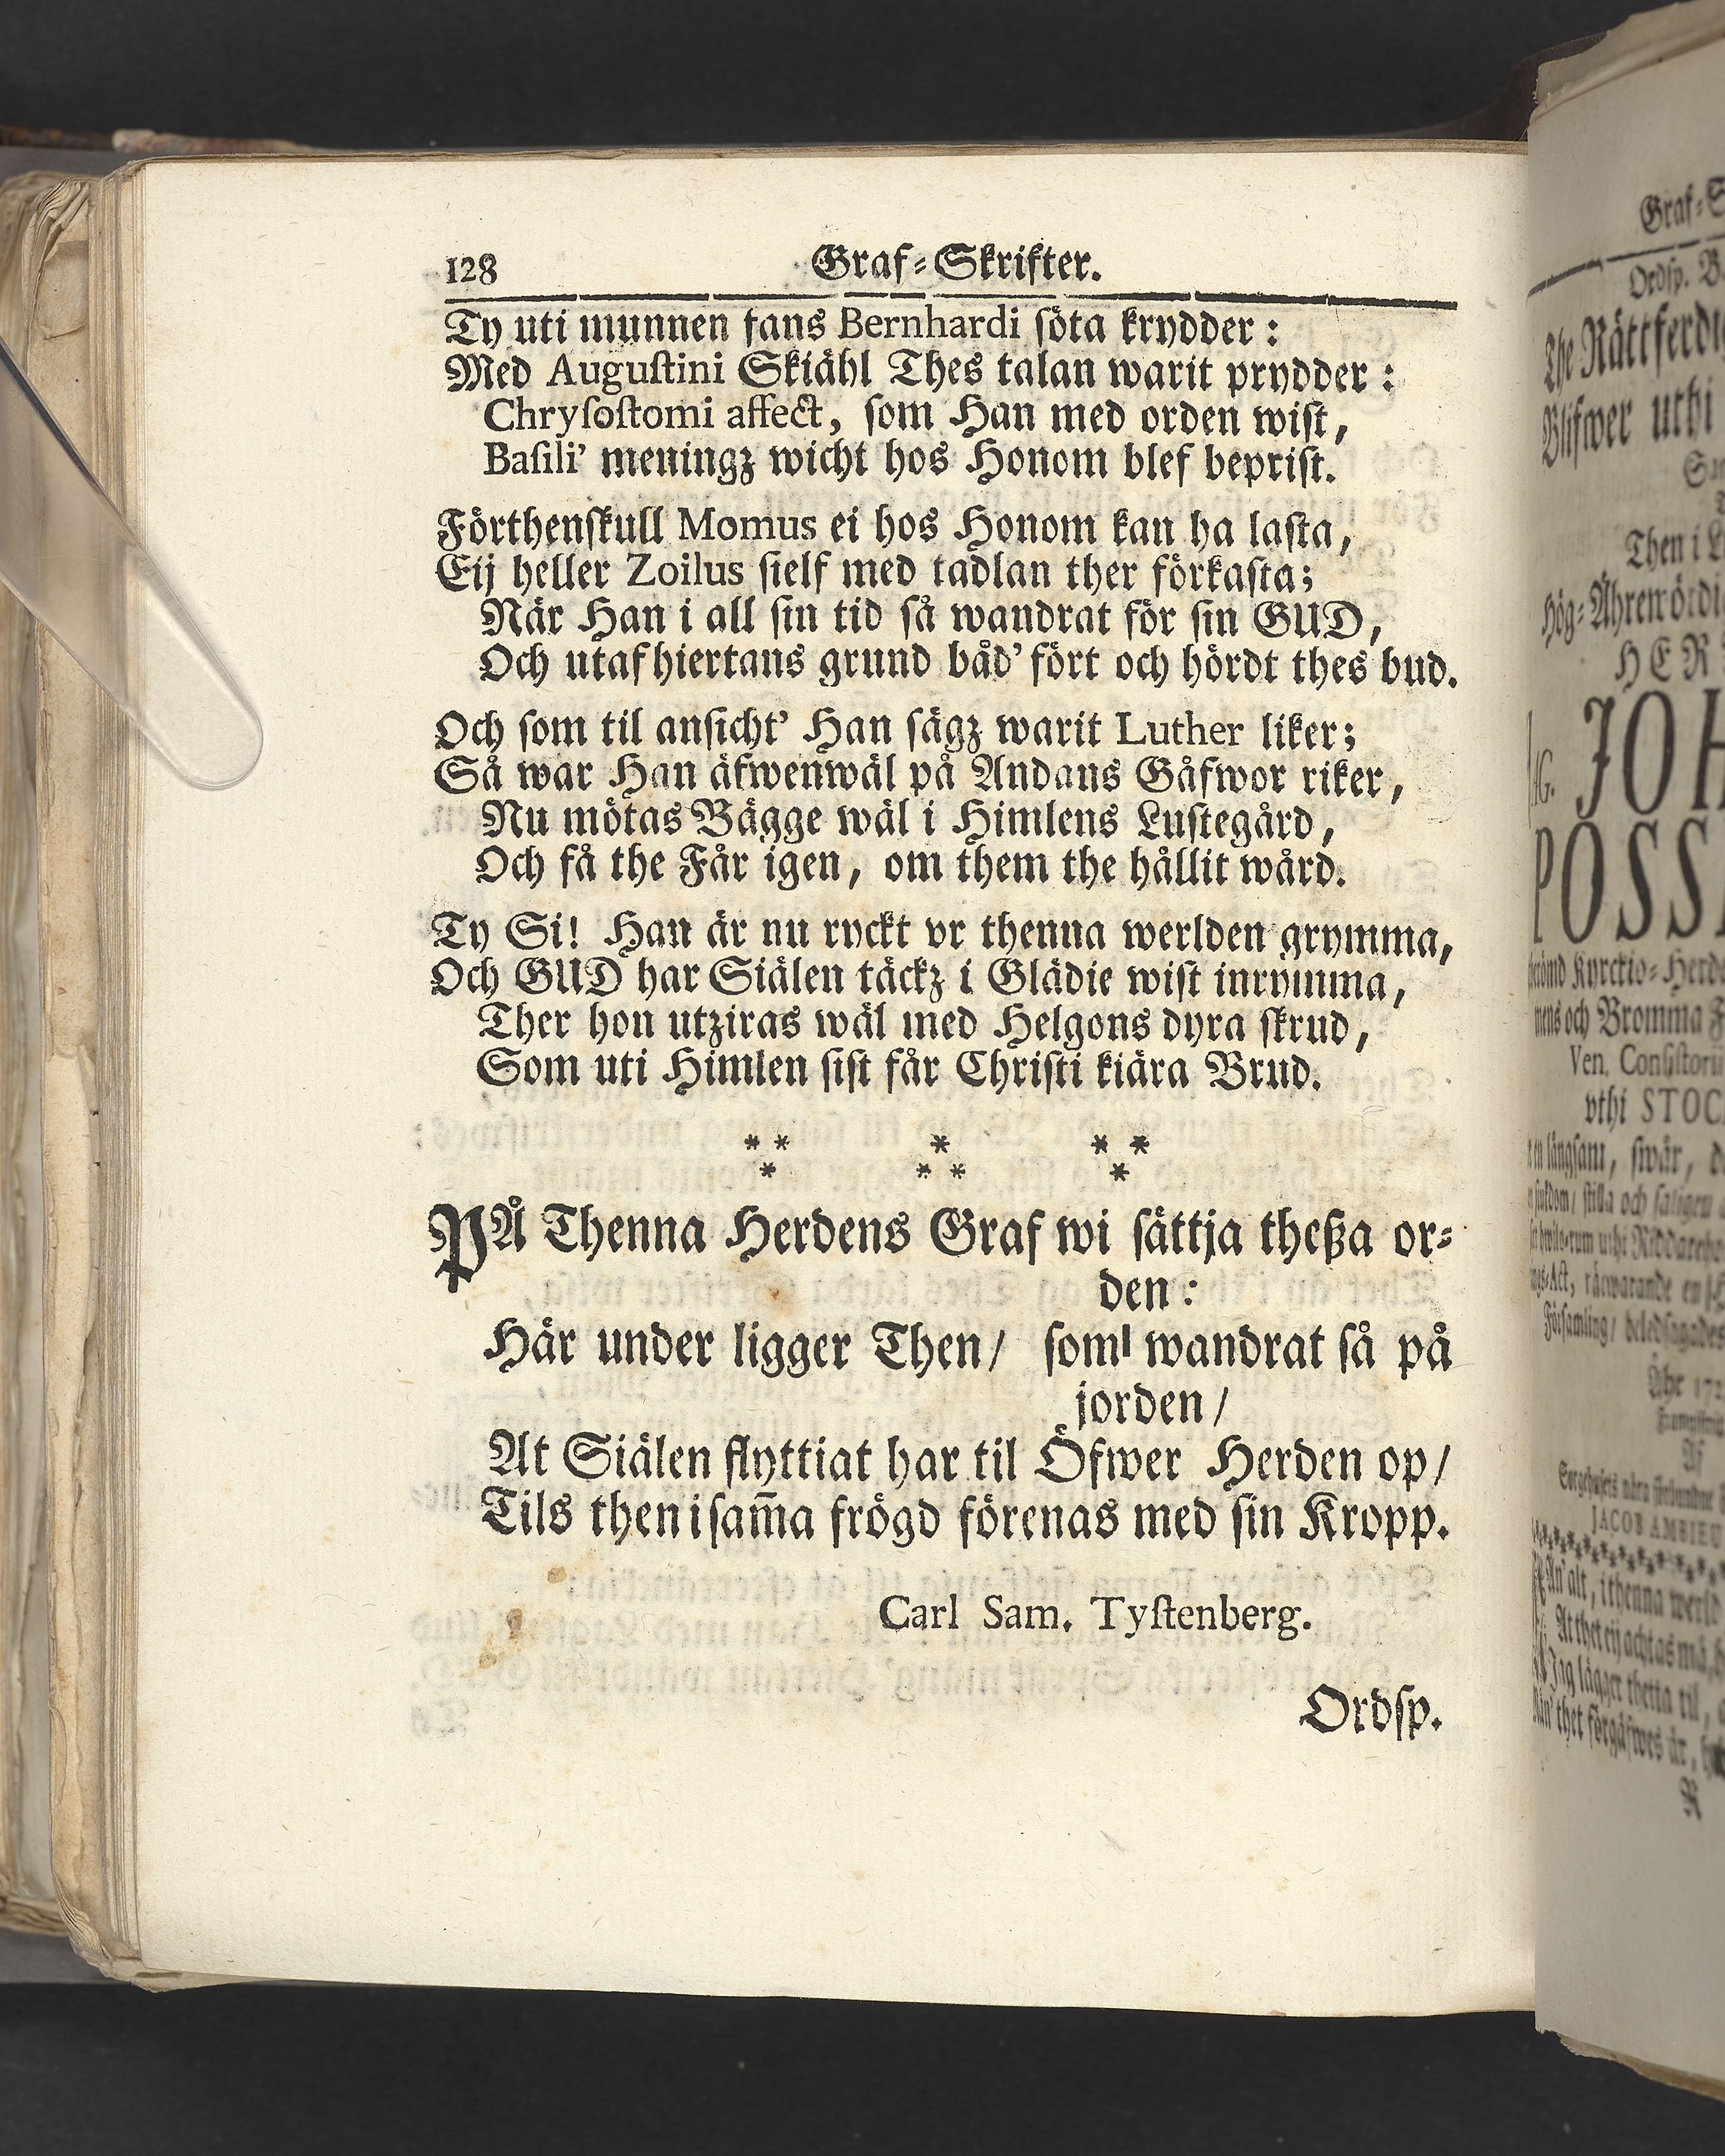 128 Graf-Skrifter.
Ty uti munnen fans Bernhardi söta krydder:
Med Augustini Skiähl Thes talan warit prydder:
Chrysostomi affect, som Han med orden wist,
Basili' meningz wicht hos Honom blef beprist.
Förthenskull Momus ei hos Honom kan ha lasta,
Eij heller Zoilus sielf med tadlan ther förkasta;
När Han i all sin tid så wandrat för sin GUD,
Och utaf hiertans grund båd' fört och hördt thes bud.
Och som til ansicht' Han sägz warit Luther liker;
Så war Han äfwenwäl på Andans Gåfwor riker,
Nu mötas Bägge wäl i Himlens Lustegård,
Och få the Får igen, om them the hållit wård.
Ty Si! Han är nu ryckt vr thenna werlden grymma,
Och GUD har Siälen täckz i Glädie wist inrymma,
Ther hon utziras wäl med Helgons dyra skrud,
Som uti Himlen sist får Christi kiära Brud.
* * * * *
* * * *
PÅ Thenna Herdens Graf wi sättja theßa or-
den:
Här under ligger Then/ som wandrat så på
jorden/
At Siälen flyttiat har til Öfwer Herden op/
Tils then i sam̃a frögd förenas med sin Kropp.
Carl Sam. Tystenberg.
Ordsp.
Graf-S
Ordsp.
The Rättferdi
Blifwer uthi
Then i
Hög-Ährewördi
HER
JOH
POSS
Kyrckio-Herde
och Bromma
Ven. Consistorii
vthi STOC
långsam, swår,
stilla och
Församling/ beledsagades
Åhr 172
Af
JACOB
alt, i thenna werld
At thet eij achtas må,
Jag lägger thetta til,
thet förgäfwes är,
R